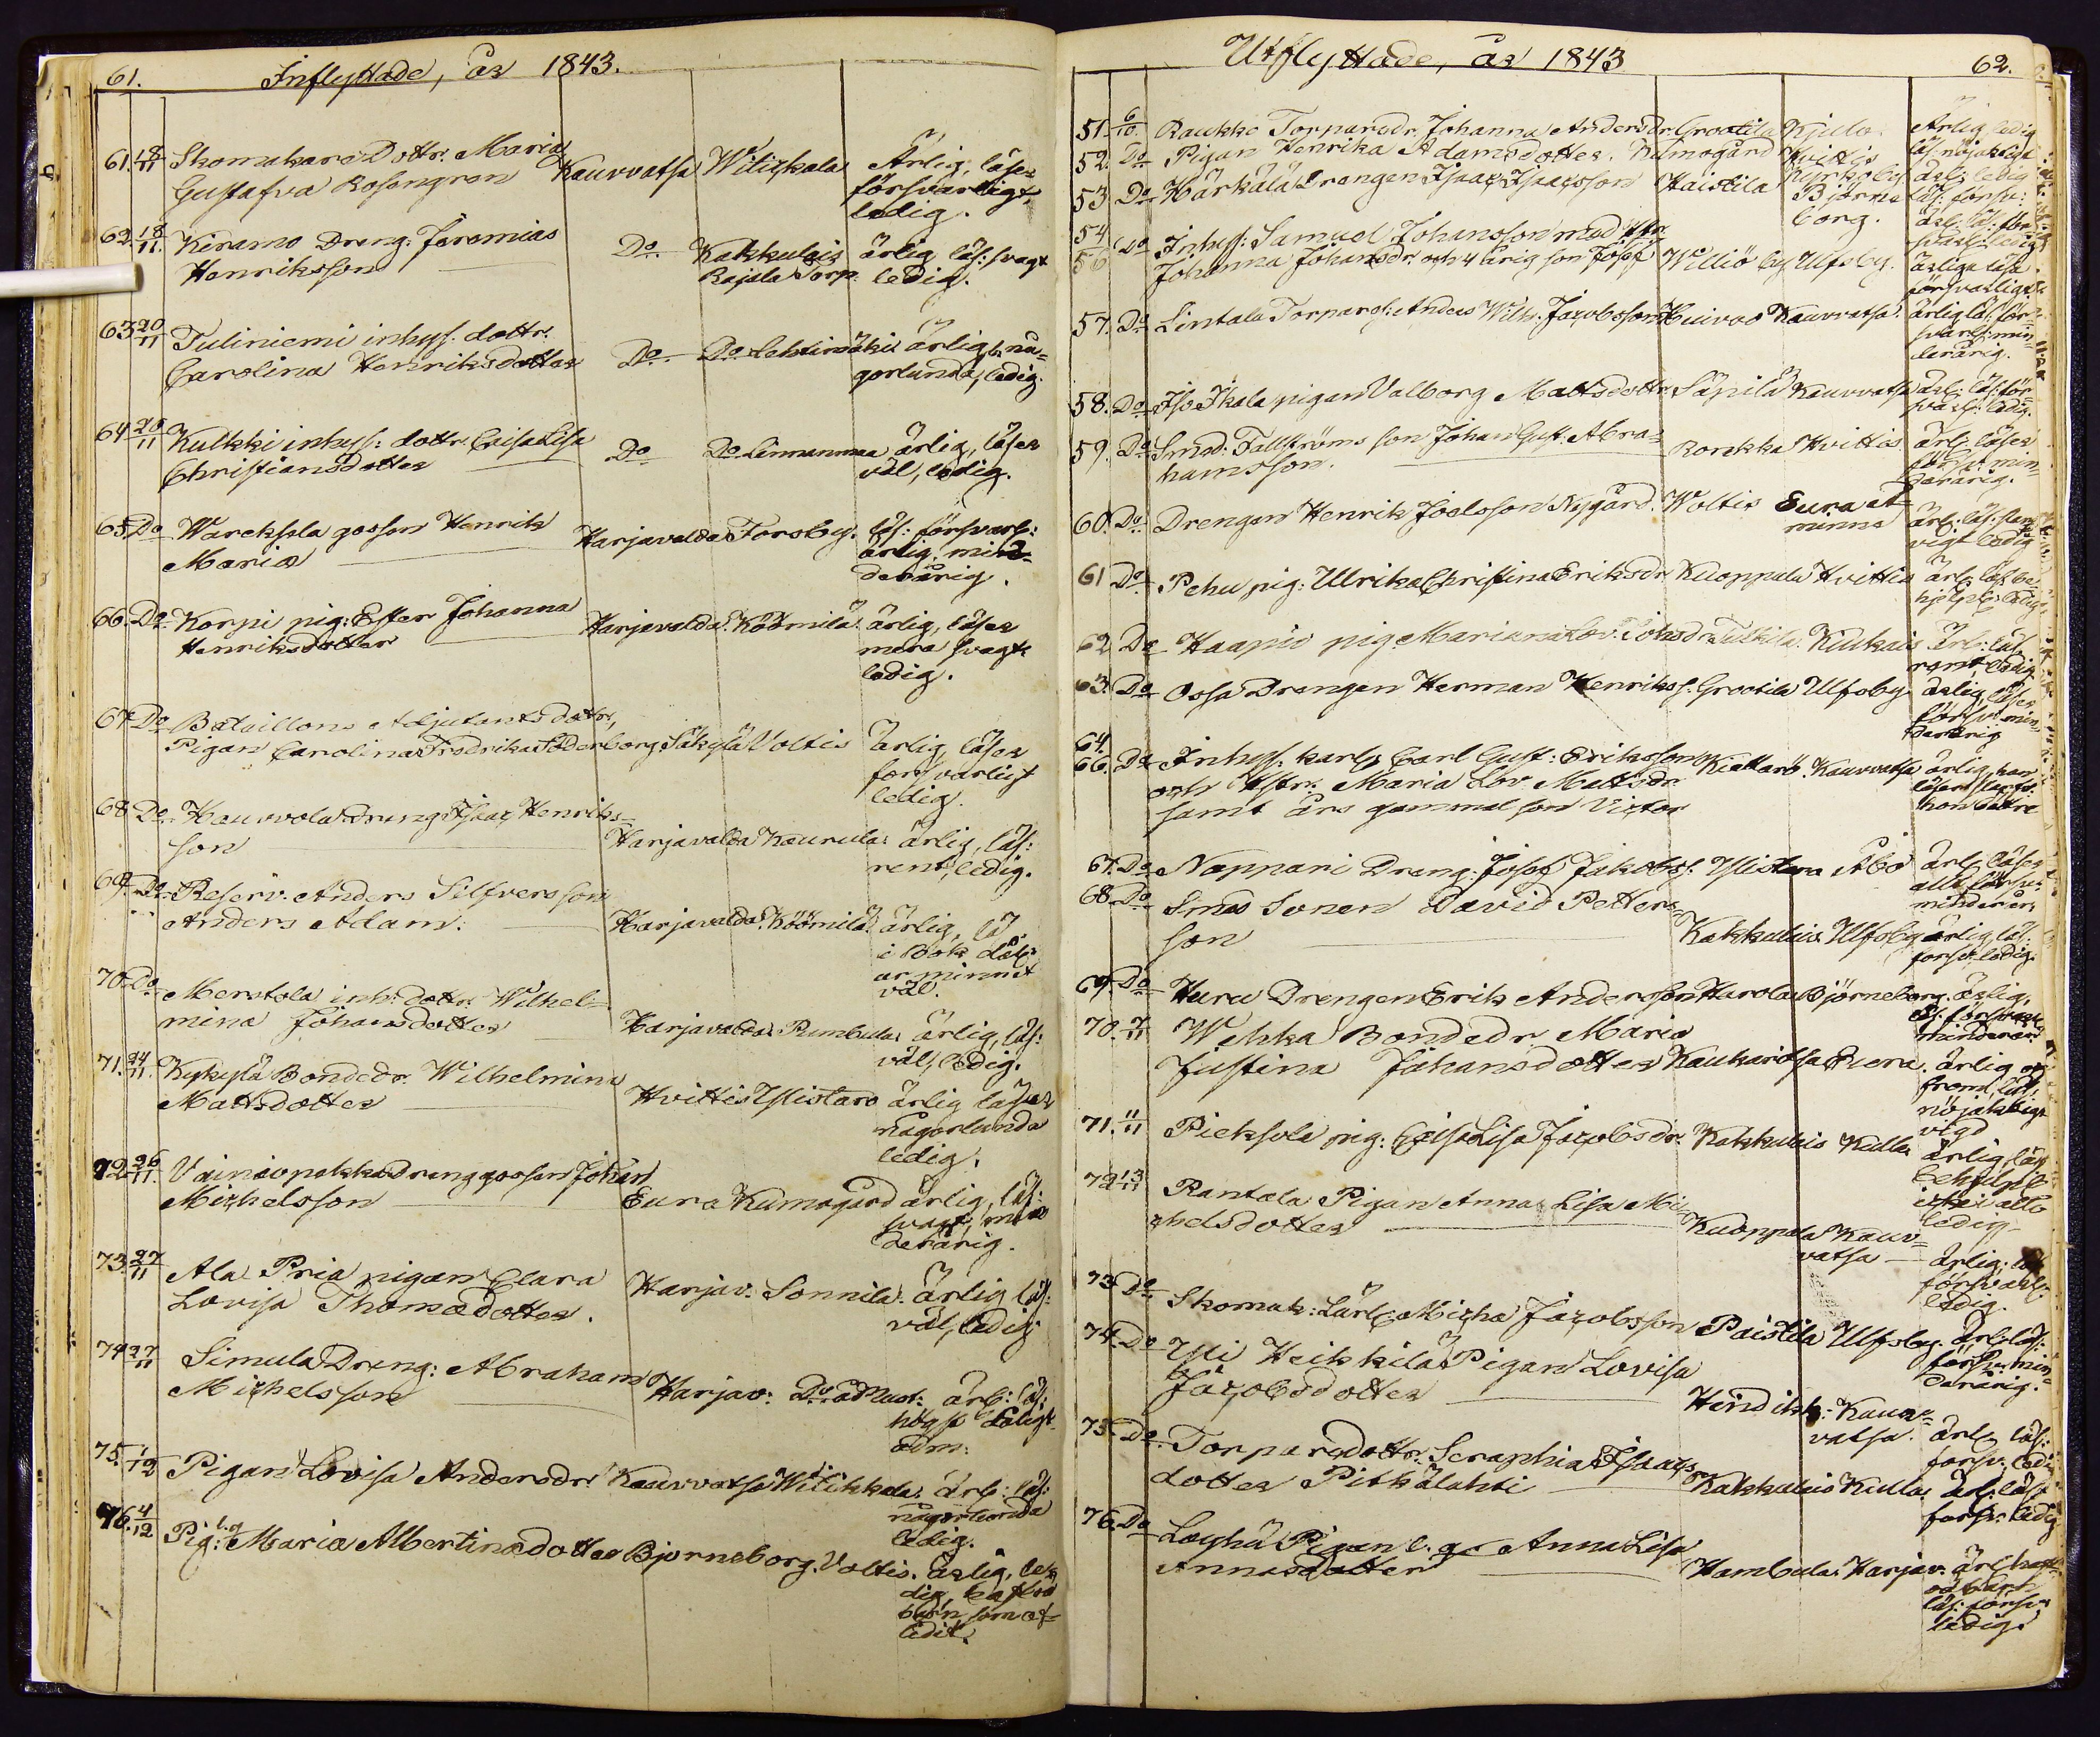 61. Inflyttade, år 1843.
61. 18/11 Skomakare Dottr. Maria
Gustafva Rosengren Kauvvatsa Witickala Ärlig, läser
försvarligt,
ledig.
62. 18/11. Keramo Dreng: Jeremias
Henriksson Do. Kakkulais ärlig läs: svagt
Rajala Torp. ledig.
63 20/11 Tuliniemi inhys. dottr.
Carolina Henriksdotter Do Do Lehtimäki ärlig, nå=
gorlunda, ledig.
64 20/11 Kulkki inhys: dottr. Caisa Lisa
Christiansdotter Do Do Linnanmaa ärlig, läser
väl, ledig.
65. Do Wareksela gosson Henrik
Maria Harjavalda Torsby. läs: försvarl:
ärlig, min=
derårig.
66. Do Korpi pig: Ester Johanna
Henriksdotter Harjavalda Köömilä ärlig, läser
mera svagt
ledig.
67 Do Bataillons Adjutantsdottr,
Pigan Carolina Fredrika Söderborg Säkylä Voltis ärlig, läser
försvarligt
ledig.
68 Do Hauvvola dreng Isaac Henriks=
son Harjavalda Kaurula ärlig, läs:
rent, ledig.
69. Do Reserv. Anders Silfvers son
Anders Adam. Harjavalda Köömilä ärlig, lä
i Bok
ur minnet
väl.
70 Do Merstola inh: dottr. Wilhel=
mina Johansdotter Harjavalda Pumbula ärlig, läs:
väl, ledig.
71. 24/11. Kykylä Bondedr. Wilhelmina
Mattsdotter Hvittis Ylistaro ärlig läser
någorlunda
ledig.
72 26/11. Vainiopakka drenggosson Johan
Michelsson Eura Kumogård ärlig, läs:
svagt, min
derårig.
73. 27/11 Ala Pria pigan Clara
Lovisa Thomædotter. Harjav. Sonnila. ärlig läs:
väl, ledig
74 27/11 Simula Dreng: Abraham
Michelsson Harjav: Do ärl: läs:
högst
75. 1/12 Pigan Lovisa Andersdr. Kauvvatsa Witikkala. ärl: läs:
någorlunda
ledig.
76. 4/12 Pig: Maria Albertinadotter Björneborg. Voltis. ärlig, le=
dig,
barn som af=
lidit.
Utflyttade, år 1843 62.
51. 6/10. Raukko Torparedr. Johanna Andersdr. Grootila Kjulo. Ärlig ledig
52. Do Pigan Henrika Adamsdotter. Kumogård Hvittis läs nöjaktligt
Kyrkoby ärl: ledig
53 Do Härkälä Drengen Isaac Isaacsson Haistila Björne läs: försv:
borg. ärl: läs: för
54 svarl: ledig
56 Do Inhys: Samuel Johansson med hu
Johanna Johansdr. och 4 årig son Josef Williö by Ulfsby. ärliga läsa
försvarligt
57. Do Lintala Torpares: Anders Wilh. Jacobsson Huivoo Kauvvatsa. ärlig läs. för=
svarl: min
derårig.
58. Do Iso Ikala pigan Valborg Mattsdottr. Säpilä Kauvvatsa ärl: läs: för=
svarl: ledig.
59. Do Smed: Fallströms son Johan Gust. Abra=
hamsson. Ronkka Hvittis ärl: läser
försv: min
derårig.
60. Do Drengen Henrik Joelsson Nygård. Woltis Eura å
minne ärl: läs:
ledig
61 Do Pehu pig: Ulrika Christina Eriksdr. Kuoppala Hvittis ärl: läs. be=
hjelpl: ledig
62 Do Haapio pig. Mariana Lov. Johsdr. Tulkila. Kiukais ärl: läs.
rent ledig
63. Do Ossa Drengen Herman Henrikss. Grootila Ulfsby ärlig läser
försv. min=
derårig
64.
66. Do Inhys. karl Carl Gust: Eriksson Kiettarö. Kauvvatsa ärlig han
och Hstr. Maria Lov Mattsdr. läser
samt års gammal son Victor hon bättre
67. Do Nappari Dreng: Josef Jakobss. Ylistaro Åbo ärl: läser
68. Do Smed Sonen David Petters=
son Kakkulais Ulfsby ärlig läs:
försv. ledig.
69 Do Huru Drengen Erik Andersson Harola Björneborg. ärlig,
läs: försvarl
minderår:
70. 7/11 Wehka Bondedr. Maria
Justina Johansdotter Kaukaritsa Eura. ärlig och
from, läs:
nöjaktligt
vigd
71. 11/11 Pieksola pig: Caisa Lisa Jacobsdr. Kakkulais Kulla ärlig läs
behjelpl:
ledig
72 13/11 Rantala Pigan Anna Lisa Mi=
chelsdotter Kuoppala Kauv=
vatsa ärlig, läs
försvarl.
ledig.
73 Do Skomak: Lärl. Micha Jacobsson Paistila Ulfsby. ärl: läs:
försv. min=
derårig.
74. Do Yli Heikkilä Pigan Lovisa
Jacobsdotter Kauv=
vatsa. ärl: läs:
försv. ledig
75. Do Torparedottr. Seraphia Isaacs
dotter Pitkälahti Kakkulais Kulla. ärl: läs
försv. ledig
76. Do Löyhä Pigan Anna Lisa
Annasdotter Hambula. Harjav. ärl. haft
barn
läs: försv.
ledig.